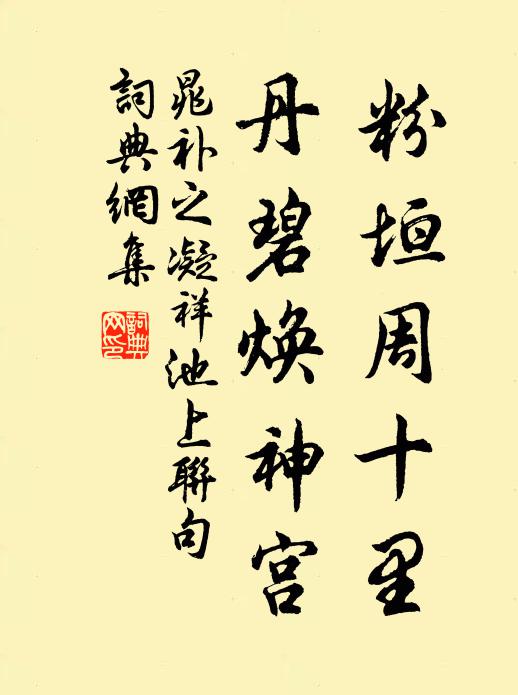 粉垣周十里
丹碧焕神宫
晁补之凝祥池上聯句
詞典網集
詞典網印